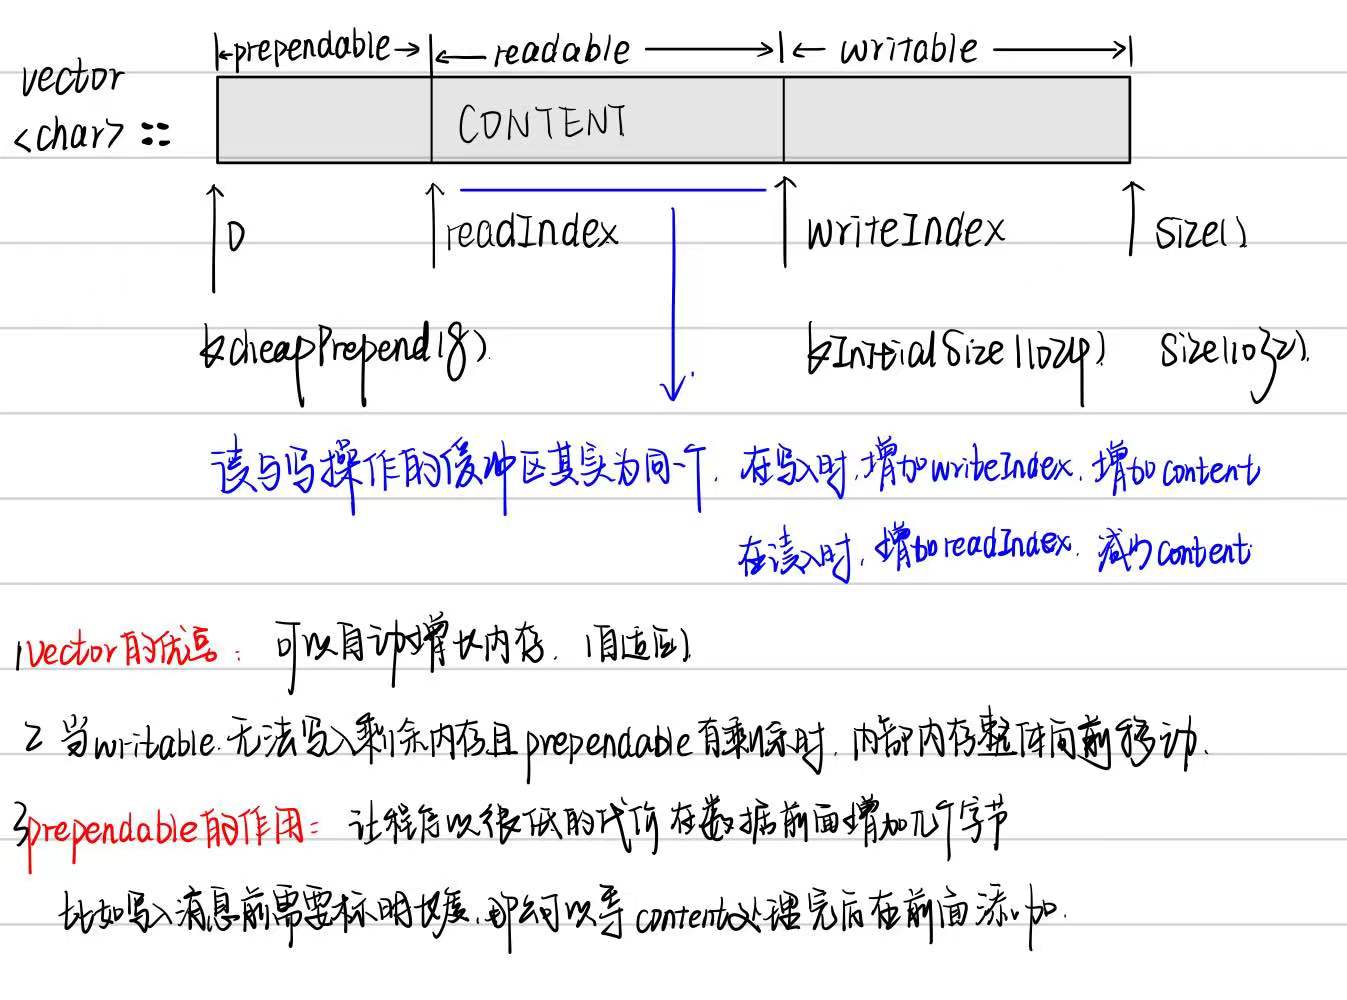 prependable readable writable
vector
<char> ::
CONTENT
0 readIndex writeIndex size()
kcheapPrepend(8) kInitialSize(1024) size(1032).
读与写操作的缓冲区其实为同一个. 在写入时,增加writeIndex. 增加content
在读入时,增加readIndex. 减少content
1vector的优点: 可以自动增长内存. (自适应)
2 当writable.无法写入剩余内存且prependable有剩余时. 内部内存整体向前移动.
3prependable的作用: 让程序以很低的代价在数据前面增加几个字节
比如写入消息前需要标明长度.那么可以等content处理完后在前面添加.